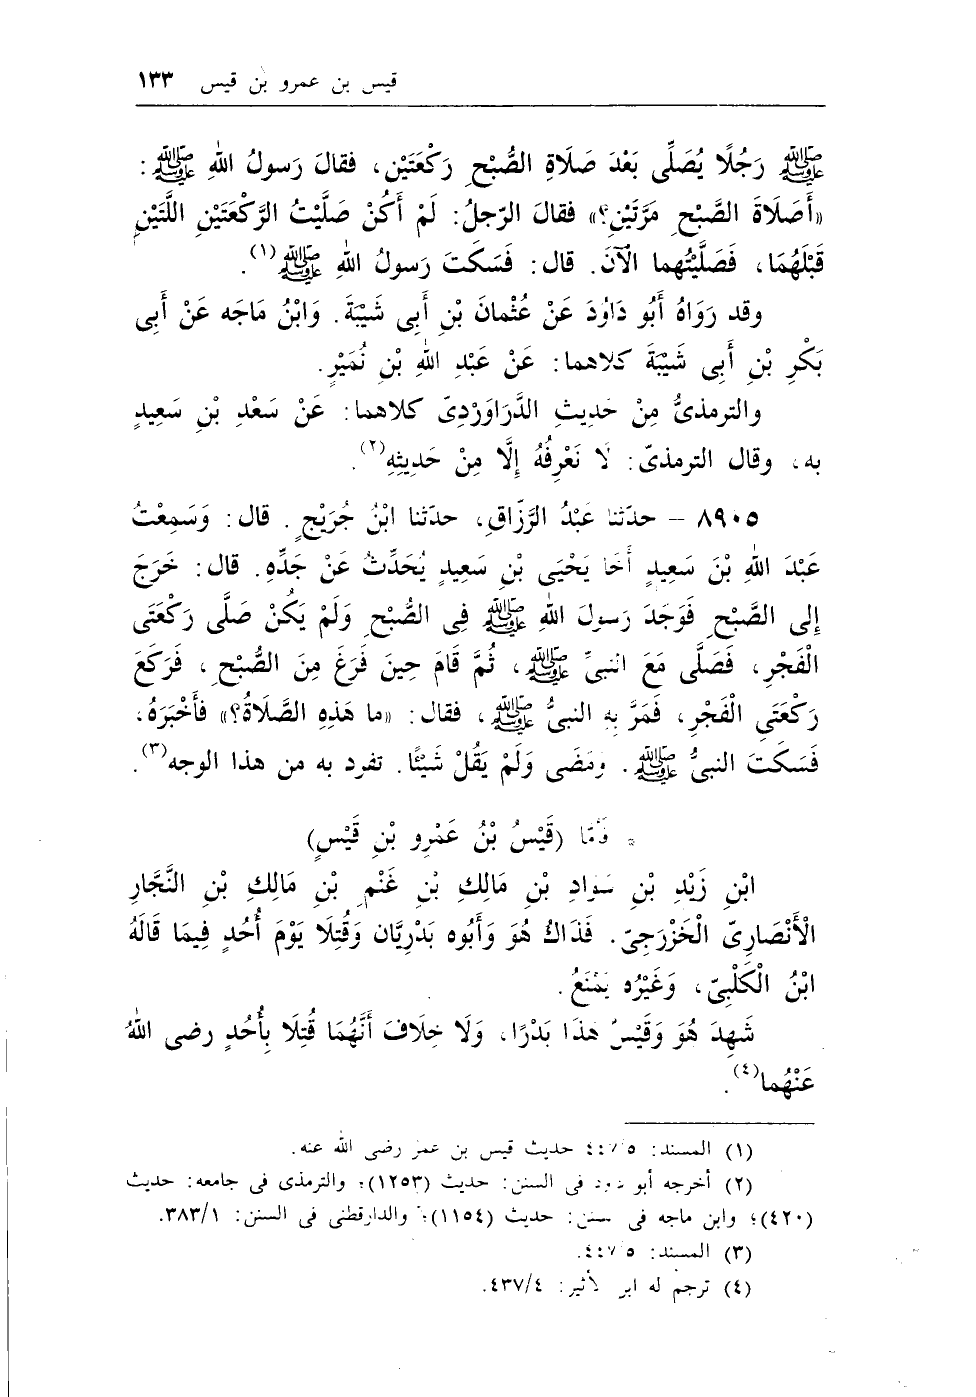 قيس بن عمرو بن قيس ١٣٣
ﷺ رَجُلًا يُصَلِّى بَعْدَ صَلَاةِ الصُّبْحِ رَكْعَتَيْنِ، فقالَ رَسولُ اللهِ ﷺ :
«أَصَلَاةَ الصَّبْحِ مَرَّتَيْنِ؟» فقالَ الرّجلُ: لَمْ أَكُنْ صَلَّيْتُ الرَّكْعَتَيْنِ اللَّتَيْنِ
قَبْلَهُمَا، فَصَلَّيْتُهما الآنَ. قال: فَسكَتَ رَسولُ اللهِ ﷺ(١).
وقد رَوَاهُ أَبُو دَاوُدَ عَنْ عُثْمانَ بْنِ أَبى شَيْبَةَ. وَابْنُ مَاجَه عَنْ أَبى
بَكْرِ بْنِ أَبِى شَيْبَةَ كلاهما: عَنْ عَبْدِ اللهِ بْنِ نُمَيْرٍ.
والترمذىُّ مِنْ حَدِيثِ الدَّرَاوَرْدِىّ كلاهما: عَنْ سَعْدِ بْنِ سَعِيدٍ
به، وقال الترمذىّ: لَا نَعْرِفُهُ إِلَّا مِنْ حَدِيثِهِ(٢).
٨٩٠٥ – حدّثنا عَبْدُ الرَّزّاقِ، حدّثنا ابْنُ جُرَيْجٍ. قال: وَسَمِعْتُ
عَبْدَ اللهِ بْنَ سَعِيدٍ أَخَا يَحْيَى بْنِ سَعِيدٍ يُحَدِّثُ عَنْ جَدِّهِ. قال: خَرَجَ
إِلى الصَّبْحِ فَوَجَدَ رَسولَ اللهِ ﷺ فِى الصُّبْحِ وَلَمْ يَكُنْ صَلَّى رَكْعَتَى
الْفَجْرِ، فَصَلَّى مَعَ النبىِّ ﷺ، ثُمَّ قَامَ حِينَ فَرَغَ مِنَ الصُّبْحِ، فَرَكَعَ
رَكْعَتَىِ الْفَجْرِ، فَمَرَّ بِهِ النبىُّ ﷺ، فقال: «ما هَذِهِ الصَّلَاةُ؟» فأَخْبَرَهُ،
فَسَكَتَ النبىُّ ﷺ. ومَضَى وَلَمْ يَقُلْ شَيْئًا. تفرد به من هذا الوجه(٣).
* فأَمّا (قَيْسُ بْنُ عَمْرِو بْنِ قَيْسٍ)
ابْنِ زَيْدِ بْنِ سَوادِ بْنِ مَالِكِ بْنِ غَنْمِ بْنِ مَالِكِ بْنِ النَّجَّارِ
الْأَنْصَارِىّ الْخَزْرَجِىّ. فَذَاكَ هُوَ وَأَبُوه بَدْرِيَّان وَقُتِلَا يَوْمَ أُحُدٍ فِيمَا قَالَهُ
ابْنُ الْكَلْبِىّ، وَغَيْرُه يَمْنَعُ.
شَهِدَ هُوَ وَقَيْسٌ هذَا بَدْرًا، وَلَا خِلَافَ أَنَّهُمَا قُتِلَا بِأُحُدٍ رضى اللهُ
عَنْهُما(٤).
(١) المسند: ٤٤٧/٥ حديث قيس بن عمرو رضى الله عنه.
(٢) أخرجه أبو داود فى السنن: حديث (١٢٥٣)؛ والترمذى فى جامعه: حديث
(٤٢٠)؛ وابن ماجه فى سننه: حديث (١١٥٤)؛ والدارقطنى فى السنن: ٣٨٣/١.
(٣) المسند: ٤٤٧/٥.
(٤) ترجم له ابن الأثير: ٤٣٧/٤.